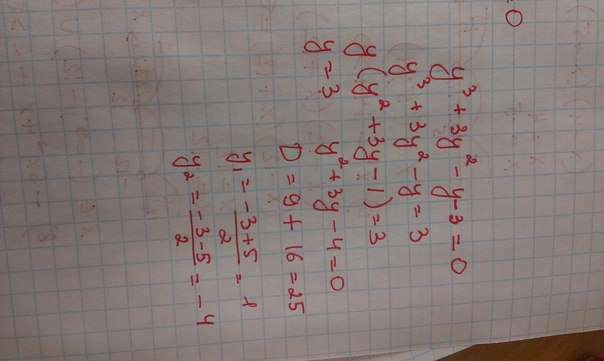 =0
y³ + 3y² - y - 3 = 0
y³ + 3y² - y = 3
y(y² + 3y - 1) = 3
y = 3 y² + 3y - 4 = 0
D = 9 + 16 = 25
y₁ = (-3+5)/2 = 1
y₂ = (-3-5)/2 = -4